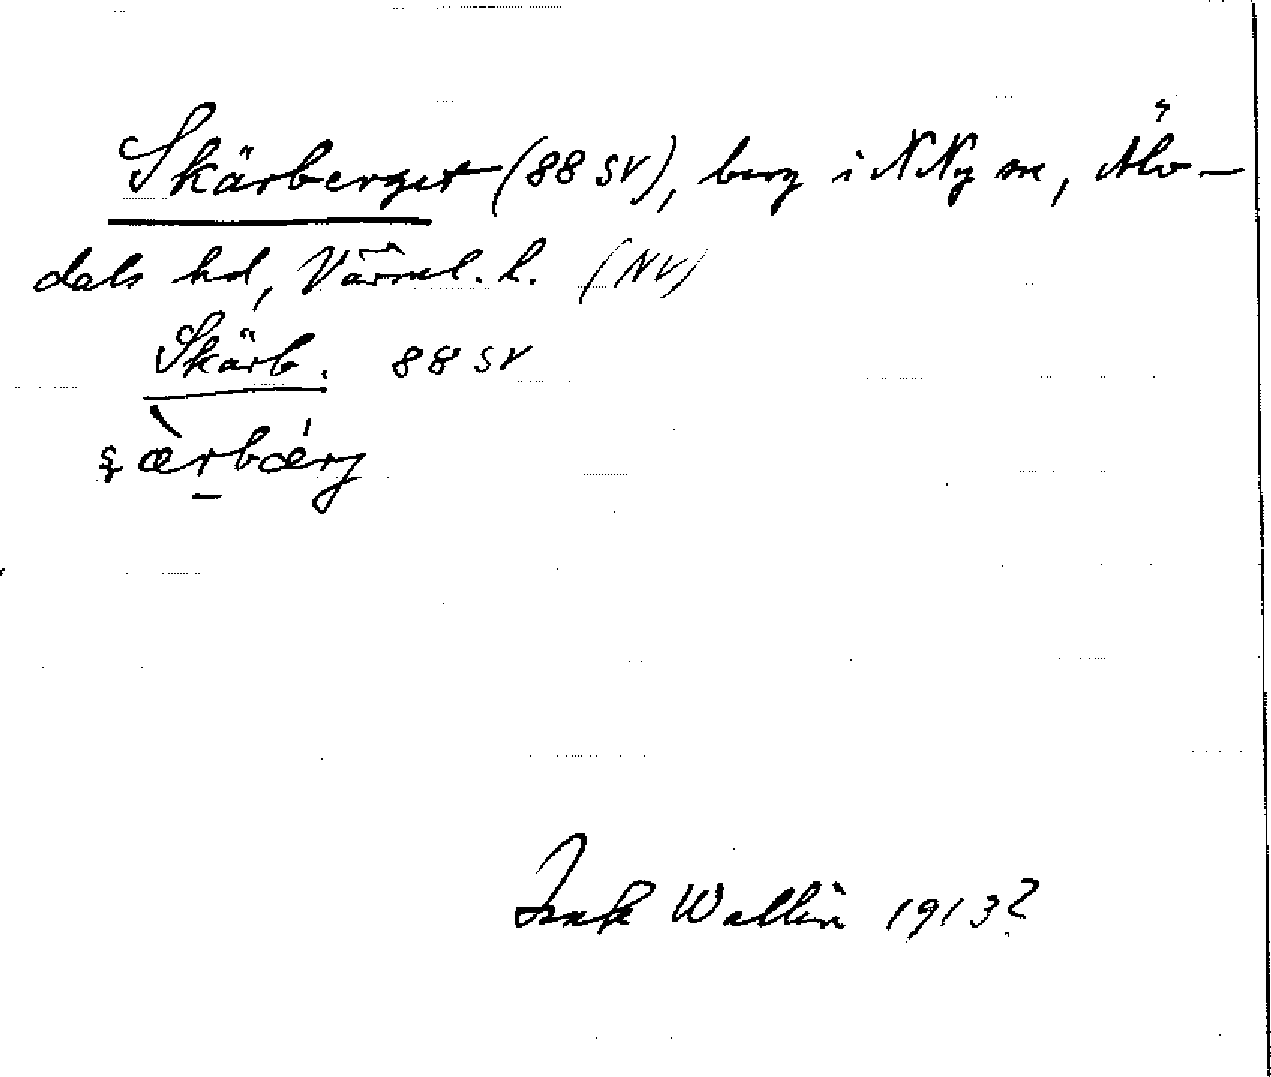 Skärberget (88 SV), berg i N Ny sn, Älv-
dals hd, Värml. l. (NV)
Skärb. 88 SV
ʂæ̀rbær̀g
Isak Wallin 1913?